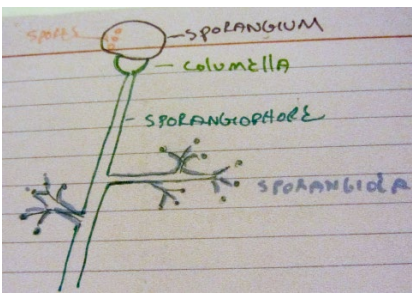 SPORES
SPORANGIUM
COLUMELLA
SPORANGIOPHORE
SPORANGIOLA